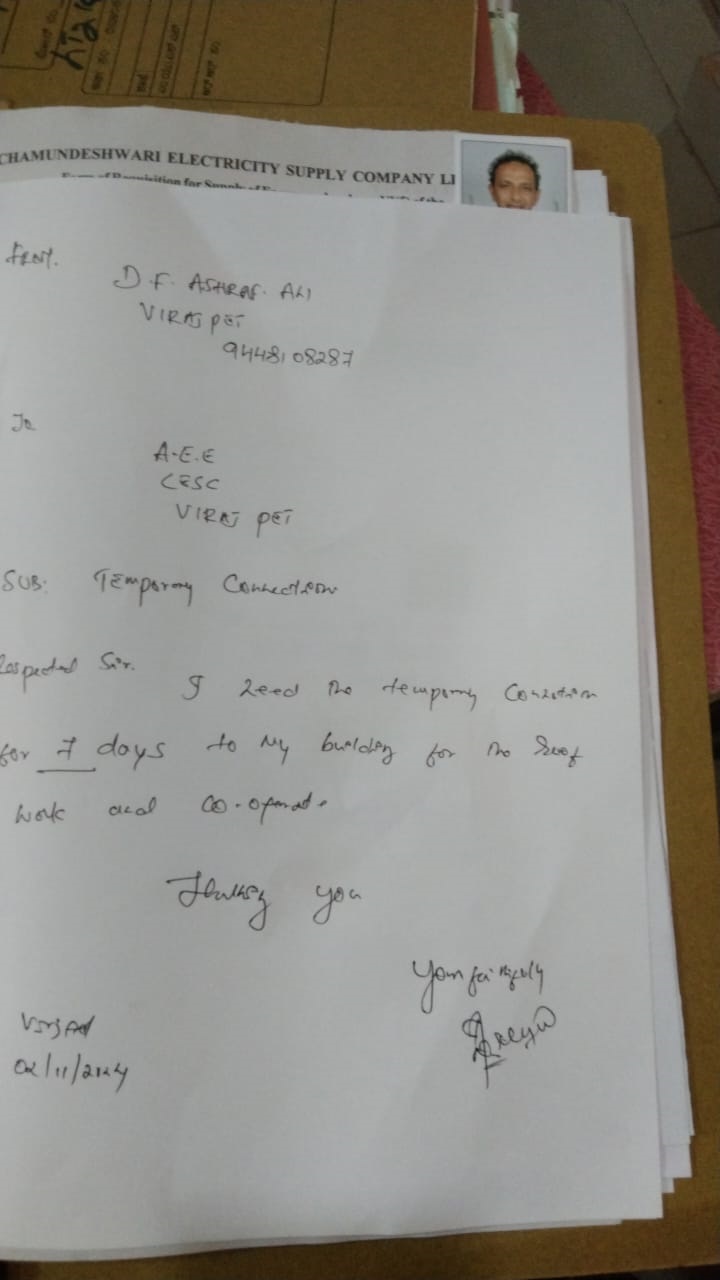 CHAMUNDESHWARI ELECTRICITY SUPPLY COMPANY LI
From.
D.F. ASHRAF. ALI
VIRAJPET
9448108287
To
A.E.E
CESC
VIRAJ PET
SUB: Temporary Connection
Respected Sir.
I need the temporary Connection
for 7 days to my building for the Roof
work and co-operate
Thanking you
Yours faithfully
02/11/2024